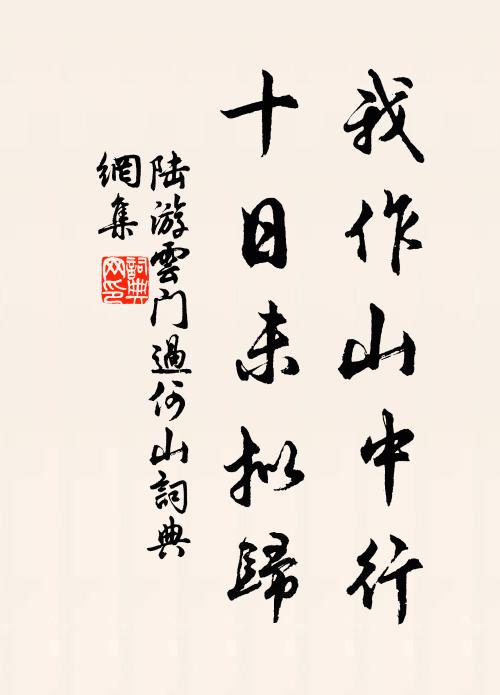 我作山中行
十日未拟歸
陆游雲門過何山詞典
網集
詞典
网印